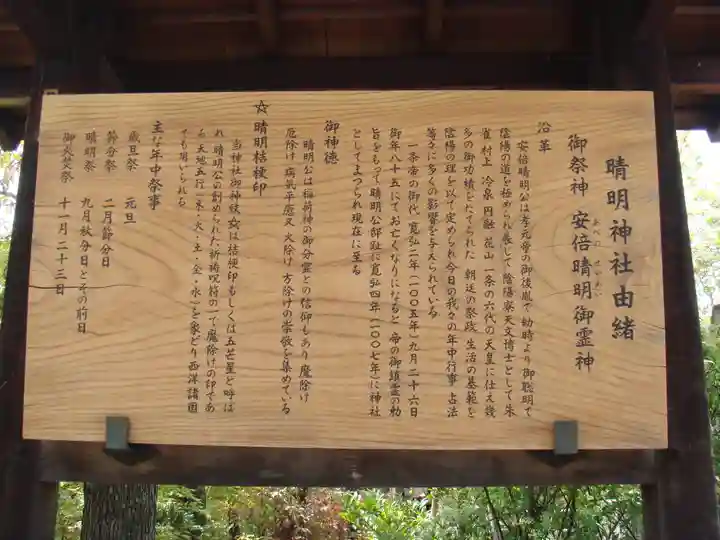 晴明神社由緒
御祭神 安倍晴明御霊神
あべの せいめい
沿革
安倍晴明公は孝元帝の御後胤で 幼時より御聡明で
陰陽の道を極められ 長じて 陰陽寮天文博士として 朱
雀 村上 冷泉 円融 花山 一条の六代の天皇に仕え 幾
多の御功績をたてられた 朝廷の祭政 生活の基範を
陰陽の理を以て定められ 今日の我々の年中行事 占法
等々に多くの影響を与えられている
一条帝の御代 寛弘二年(一〇〇五年)九月二十六日
御年八十五にてお亡くなりになると 帝の御鎮霊の勅
旨をもって 晴明公邸趾に寛弘四年(一〇〇七年)に神社
としてまつられ現在に至る
御神徳
晴明公は稲荷神の御分霊との信仰もあり 魔除け
厄除け 病気平癒 又 火除け 方除けの崇敬を集めている
☆晴明桔梗印
当神社御神紋は桔梗印もしくは五芒星と呼ば
れ 晴明公の創められた祈祷呪符の一で魔除けの印であ
る 天地五行(木・火・土・金・水)を象どり 西洋諸国
でも用いられる
主な年中祭事
歳旦祭 元旦
節分祭 二月節分日
晴明祭 九月秋分日とその前日
御火焚祭 十一月二十三日